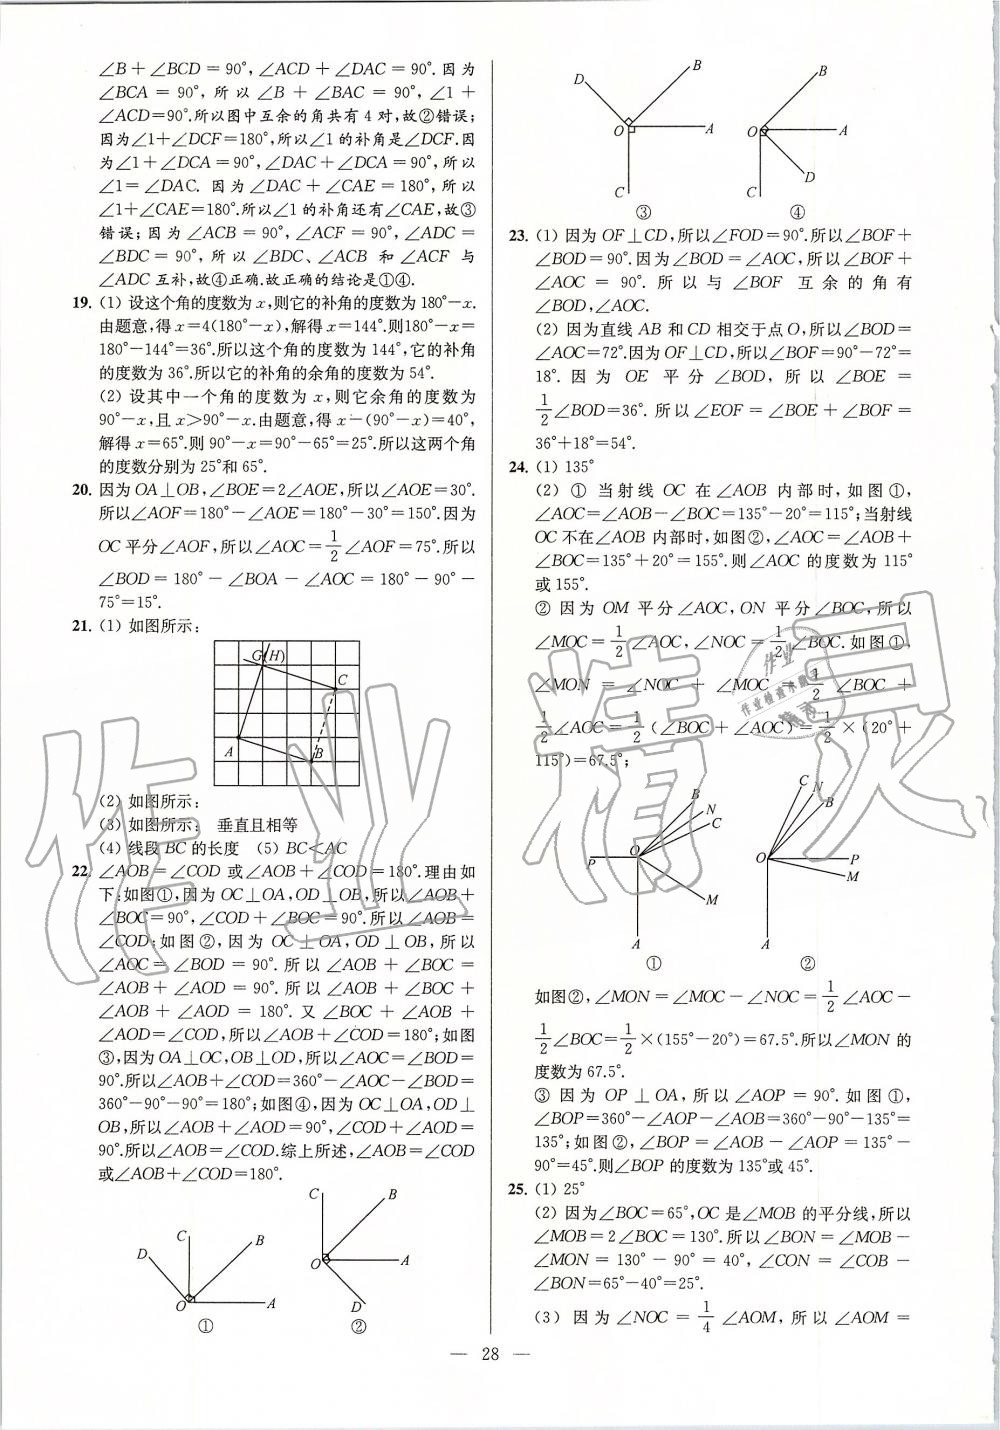 ∠B＋∠BCD＝90°,∠ACD＋∠DAC＝90°.因为
∠BCA＝90°,所以∠B＋∠BAC＝90°,∠1＋
∠ACD＝90°.所以图中互余的角共有4对,故②错误;
因为∠1＋∠DCF＝180°,所以∠1的补角是∠DCF.因
为∠1＋∠DCA＝90°,∠DAC＋∠DCA＝90°,所以
∠1＝∠DAC. 因为∠DAC＋∠CAE＝180°,所以
∠1＋∠CAE＝180°.所以∠1的补角还有∠CAE,故③
错误;因为∠ACB＝90°,∠ACF＝90°,∠ADC＝
∠BDC＝90°,所以∠BDC、∠ACB和∠ACF与
∠ADC互补,故④正确.故正确的结论是①④.
19. (1) 设这个角的度数为x,则它的补角的度数为180°－x.
由题意,得x＝4(180°－x),解得x＝144°.则180°－x＝
180°－144°＝36°.所以这个角的度数为144°,它的补角
的度数为36°.所以它的补角的余角的度数为54°.
(2) 设其中一个角的度数为x,则它余角的度数为
90°－x,且x＞90°－x.由题意,得x－(90°－x)＝40°,
解得x＝65°.则90°－x＝90°－65°＝25°.所以这两个角
的度数分别为25°和65°.
20. 因为OA⊥OB,∠BOE＝2∠AOE,所以∠AOE＝30°.
所以∠AOF＝180°－∠AOE＝180°－30°＝150°.因为
OC平分∠AOF,所以∠AOC＝1/2∠AOF＝75°.所以
∠BOD＝180°－∠BOA－∠AOC＝180°－90°－
75°＝15°.
21. (1) 如图所示:
G(H)
C
A
B
(2) 如图所示:
(3) 如图所示: 垂直且相等
(4) 线段BC的长度 (5) BC＜AC
22. ∠AOB＝∠COD或∠AOB＋∠COD＝180°.理由如
下:如图①,因为OC⊥OA,OD⊥OB,所以∠AOB＋
∠BOC＝90°,∠COD＋∠BOC＝90°.所以∠AOB＝
∠COD;如图②,因为OC⊥OA,OD⊥OB,所以
∠AOC＝∠BOD＝90°.所以∠AOB＋∠BOC＝
∠AOB＋∠AOD＝90°.所以∠AOB＋∠BOC＋
∠AOB＋∠AOD＝180°.又∠BOC＋∠AOB＋
∠AOD＝∠COD,所以∠AOB＋∠COD＝180°;如图
③,因为OA⊥OC,OB⊥OD,所以∠AOC＝∠BOD＝
90°.所以∠AOB＋∠COD＝360°－∠AOC－∠BOD＝
360°－90°－90°＝180°;如图④,因为OC⊥OA,OD⊥
OB,所以∠AOB＋∠AOD＝90°,∠COD＋∠AOD＝
90°.所以∠AOB＝∠COD.综上所述,∠AOB＝∠COD
或∠AOB＋∠COD＝180°.
D C B O A
①
C B O A D
②
D B O A C
③
B O A C D
④
23. (1) 因为OF⊥CD,所以∠FOD＝90°.所以∠BOF＋
∠BOD＝90°.因为∠BOD＝∠AOC,所以∠BOF＋
∠AOC＝90°.所以与∠BOF互余的角有
∠BOD,∠AOC.
(2) 因为直线AB和CD相交于点O,所以∠BOD＝
∠AOC＝72°.因为OF⊥CD,所以∠BOF＝90°－72°＝
18°.因为OE平分∠BOD,所以∠BOE＝
1/2∠BOD＝36°.所以∠EOF＝∠BOE＋∠BOF＝
36°＋18°＝54°.
24. (1) 135°
(2) ① 当射线OC在∠AOB内部时,如图①,
∠AOC＝∠AOB－∠BOC＝135°－20°＝115°;当射线
OC不在∠AOB内部时,如图②,∠AOC＝∠AOB＋
∠BOC＝135°＋20°＝155°.则∠AOC的度数为115°
或155°.
② 因为OM平分∠AOC,ON平分∠BOC,所以
∠MOC＝1/2∠AOC,∠NOC＝1/2∠BOC.如图①,
∠MON＝∠NOC＋∠MOC＝1/2∠BOC＋
1/2∠AOC＝1/2(∠BOC＋∠AOC)＝1/2×(20°＋
115°)＝67.5°;
B N C P O M A
①
C N B O P M A
②
如图②,∠MON＝∠MOC－∠NOC＝1/2∠AOC－
1/2∠BOC＝1/2×(155°－20°)＝67.5°.所以∠MON的
度数为67.5°.
③ 因为OP⊥OA,所以∠AOP＝90°.如图①,
∠BOP＝360°－∠AOP－∠AOB＝360°－90°－135°＝
135°;如图②,∠BOP＝∠AOB－∠AOP＝135°－
90°＝45°.则∠BOP的度数为135°或45°.
25. (1) 25°
(2) 因为∠BOC＝65°,OC是∠MOB的平分线,所以
∠MOB＝2∠BOC＝130°.所以∠BON＝∠MOB－
∠MON＝130°－90°＝40°,∠CON＝∠COB－
∠BON＝65°－40°＝25°.
(3) 因为∠NOC＝1/4∠AOM,所以∠AOM＝
— 28 —
作业精灵